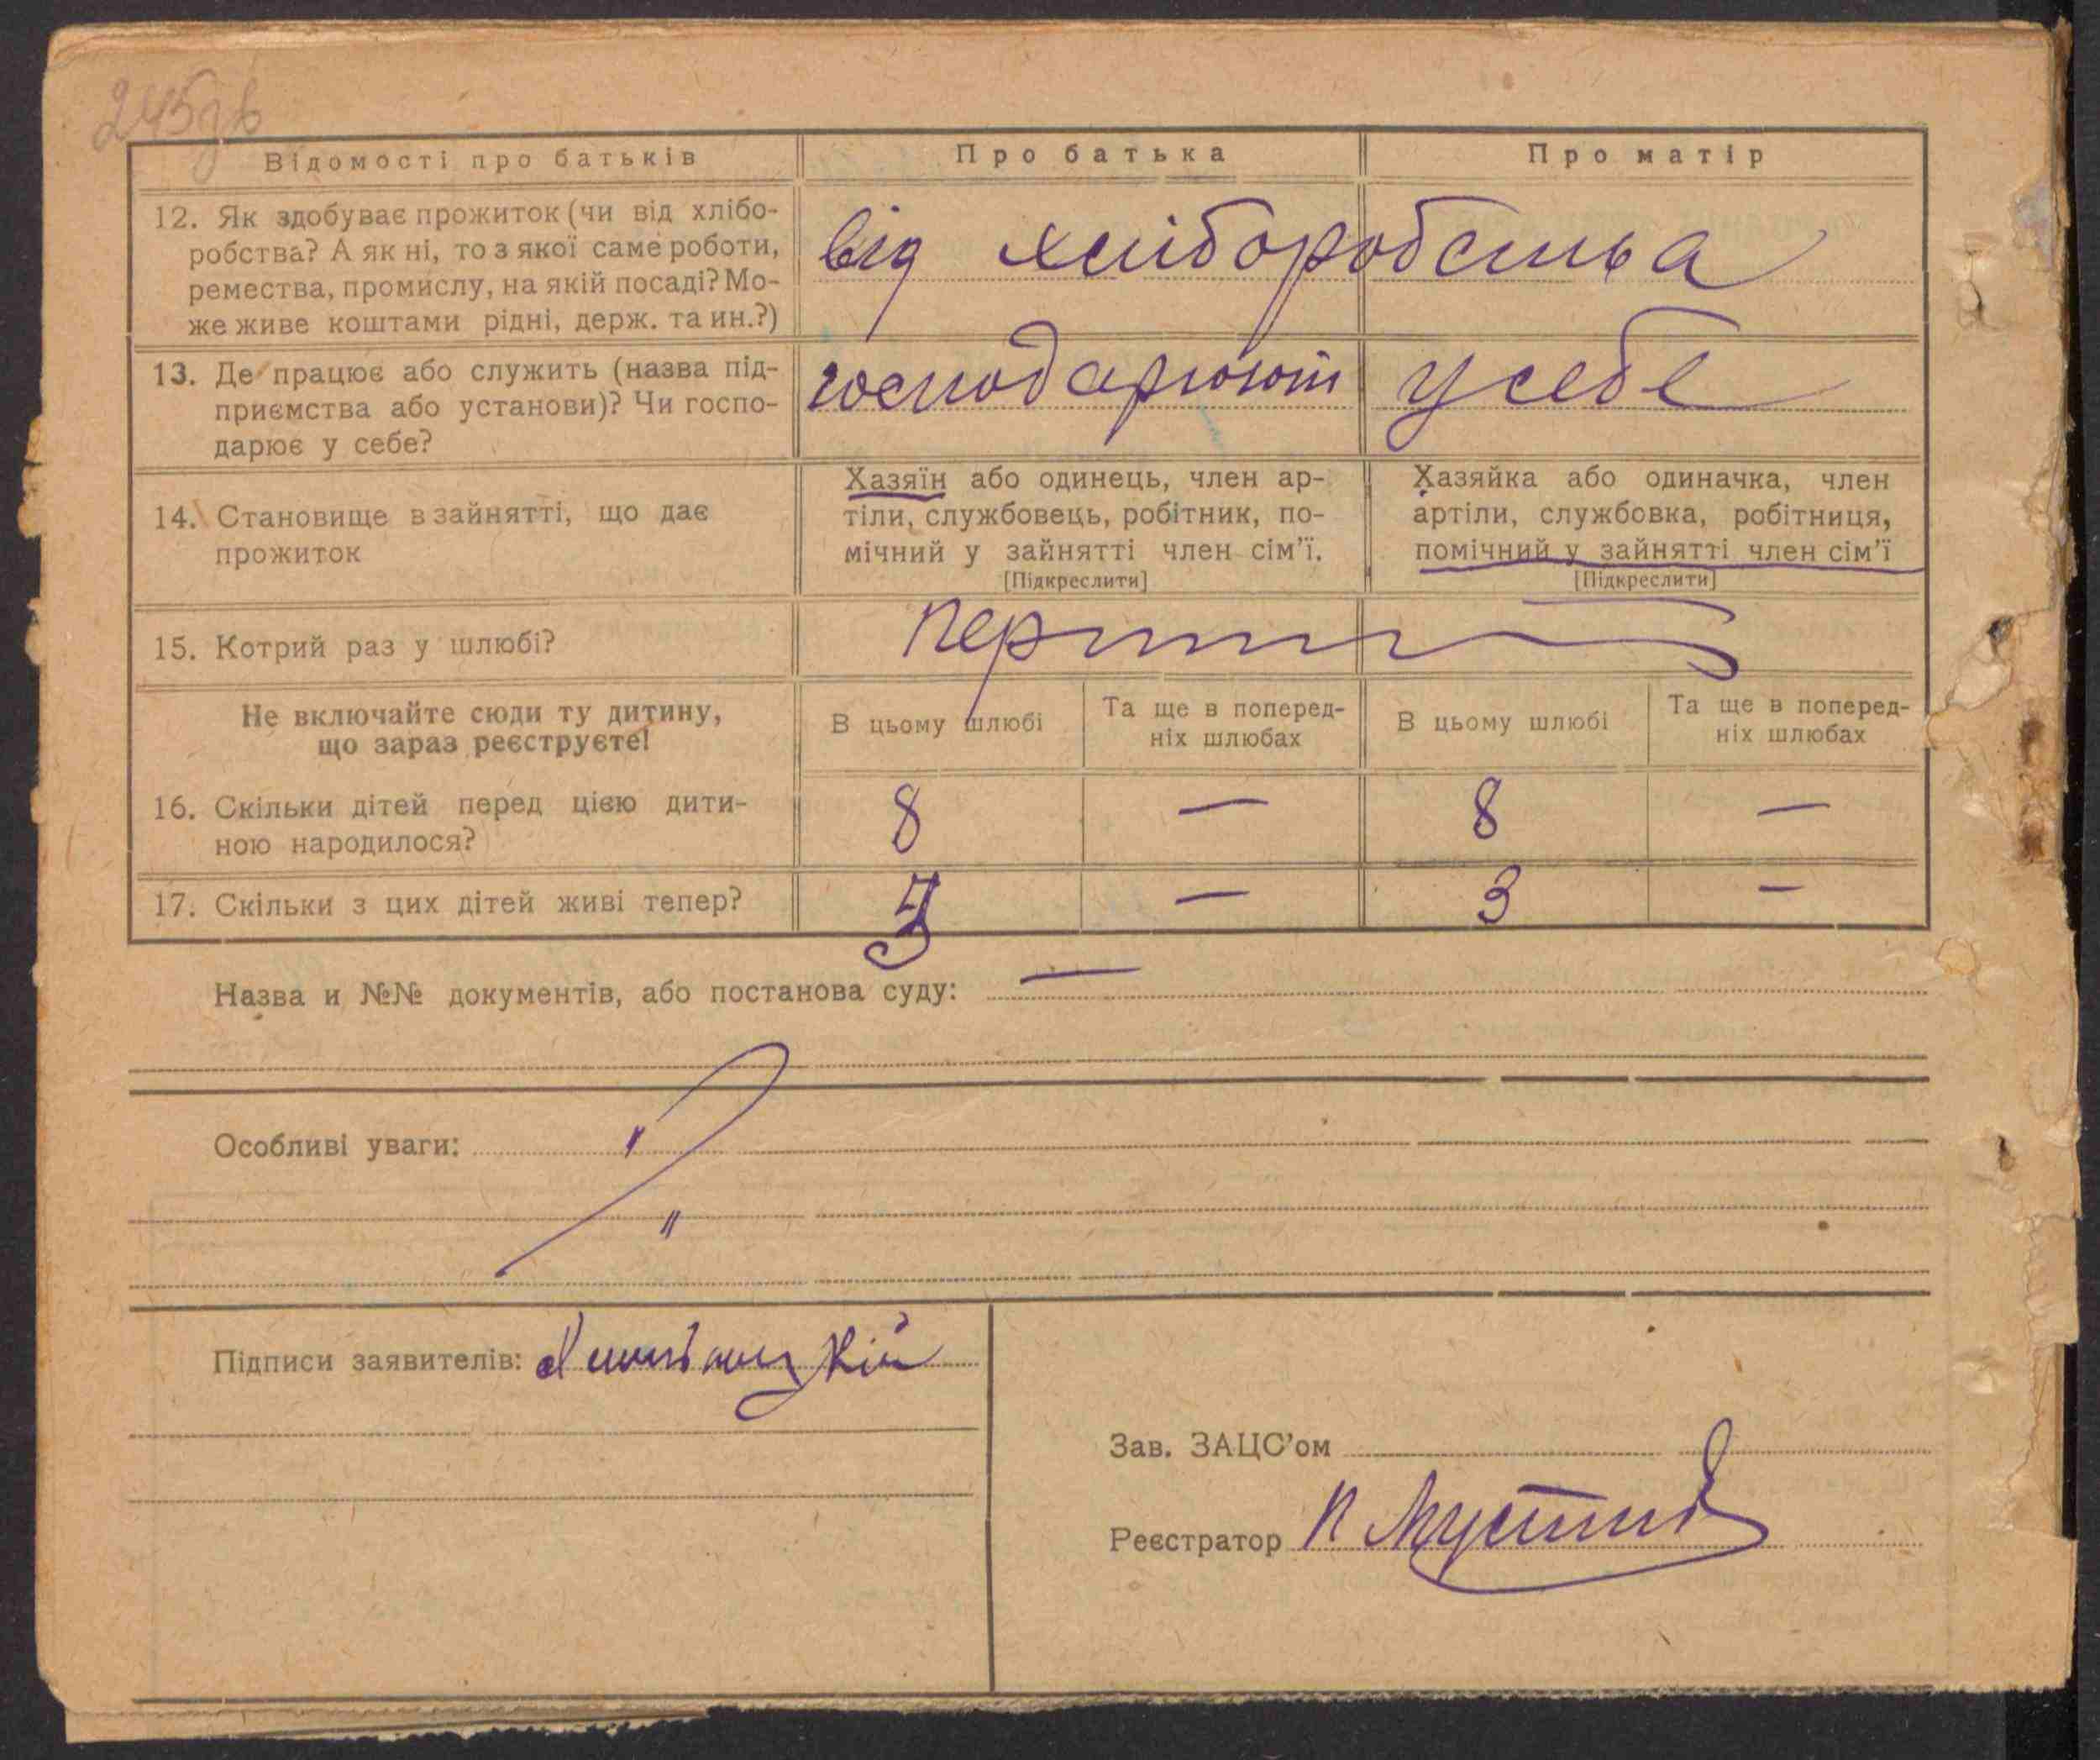 245зв
Відомості про батьків
Про батька
Про матір
12. Як здобуває прожиток (чи від хлібо-
робства? А як ні, то з якої саме роботи,
ремества, промислу, на якій посаді? Мо-
же живе коштами рідні, держ. та ин.?)
від хліборобства
13. Де працює або служить (назва під-
приємства або установи)? Чи госпо-
дарює у себе?
господарюют у себе
14. Становище в зайнятті, що дає
прожиток
Хазяїн або одинець, член ар-
тіли, службовець, робітник, по-
мічний у зайнятті член сім'ї.
[Підкреслити]
Хазяйка або одиначка, член
артіли, службовка, робітниця,
помічний у зайнятті член сім'ї
[Підкреслити]
15. Котрий раз у шлюбі?
Не включайте сюди ту дитину,
що зараз реєструєте!
В цьому шлюбі
Та ще в поперед-
ніх шлюбах
В цьому шлюбі
Та ще в поперед-
ніх шлюбах
16. Скільки дітей перед цією дити-
ною народилося?
8 — 8 —
17. Скільки з цих дітей живі тепер?
3 — 3 —
Назва и №№ документів, або постанова суду: —
Особливі уваги: "
"
Підписи заявителів:
Зав. ЗАЦС'ом
Реєстратор П